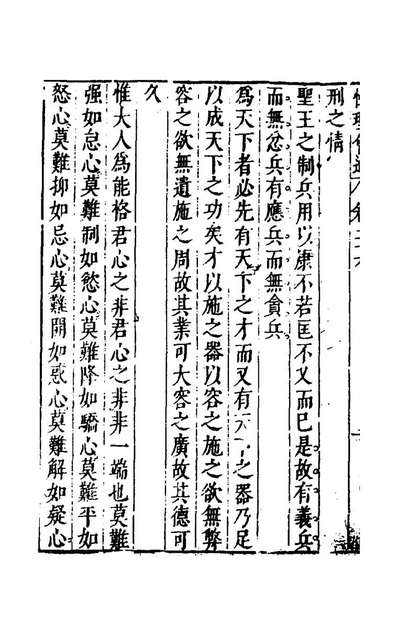 性理會通卷三六
刑之情
聖王之制兵用以康不若匡不乂而已是故有義兵
而無忿兵有應兵而無貪兵
為天下者必先有天下之才而又有天下之器乃足
以成天下之功矣才以施之器以容之施之欲無弊
容之欲無遺施之周故其業可大容之廣故其德可
久
惟大人為能格君心之非君心之非非一端也莫難
强如怠心莫難制如慾心莫難降如驕心莫難平如
怒心莫難抑如忌心莫難開如惑心莫難解如疑心